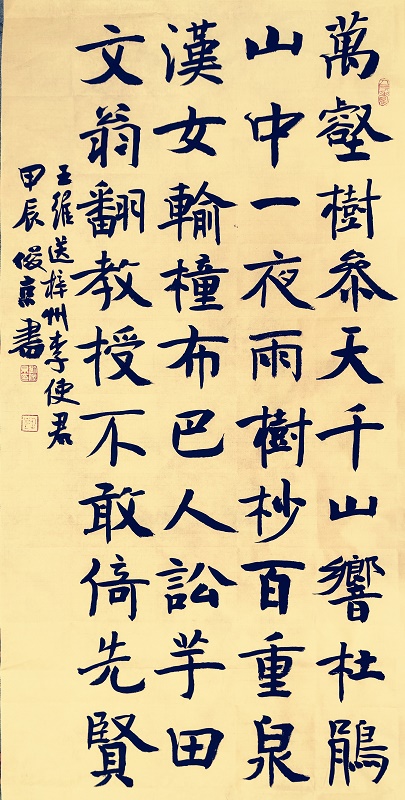 萬壑樹參天千山響杜鵑
山中一夜雨樹杪百重泉
漢女輸橦布巴人訟芋田
文翁翻教授不敢倚先賢
王維送梓州李使君
甲辰俊書